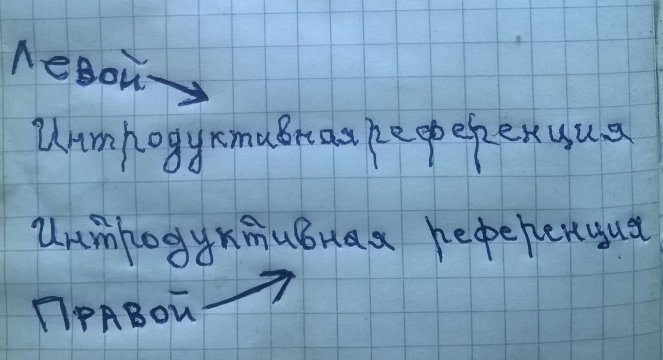 Левой
Интродуктивная референция
Интродуктивная референция
Правой